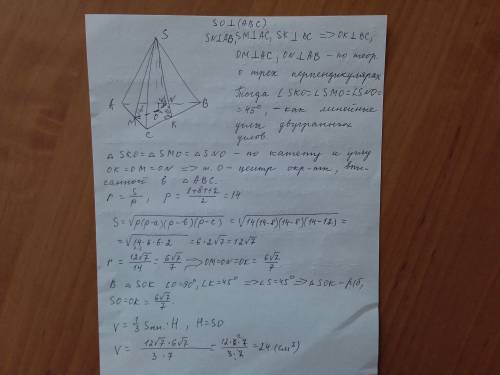 SO⊥(ABC)
SN⊥AB, SM⊥AC, SK⊥BC => OK⊥BC,
OM⊥AC, ON⊥AB - по теор.
о трех перпендикулярах
Тогда ∠SKO=∠SMO=∠SNO=
=45°, - как линейные
углы двугранных
углов.
S
A
B
C
M
N
K
O
△SKO=△SMO=△SNO - по катету и углу
OK=OM=ON => т.О - центр окр-ти, впи-
санной в △ABC.
r = S/p, p = (8+8+12)/2 = 14
S=√p(p-a)(p-b)(p-c) = √14(14-8)(14-8)(14-12) =
= √14·6·6·2 = 6·2√7 = 12√7
r = 12√7/14 = 6√7/7 => OM=ON=OK= 6√7/7
В △SOK ∠O=90°, ∠K=45° => ∠S=45° => △SOK - р/б,
SO=OK= 6√7/7
V = 1/3 Sпл·H, H=SO
V = 12√7·6√7/3·7 = 12·6·7/3·7 = 24 (см³)